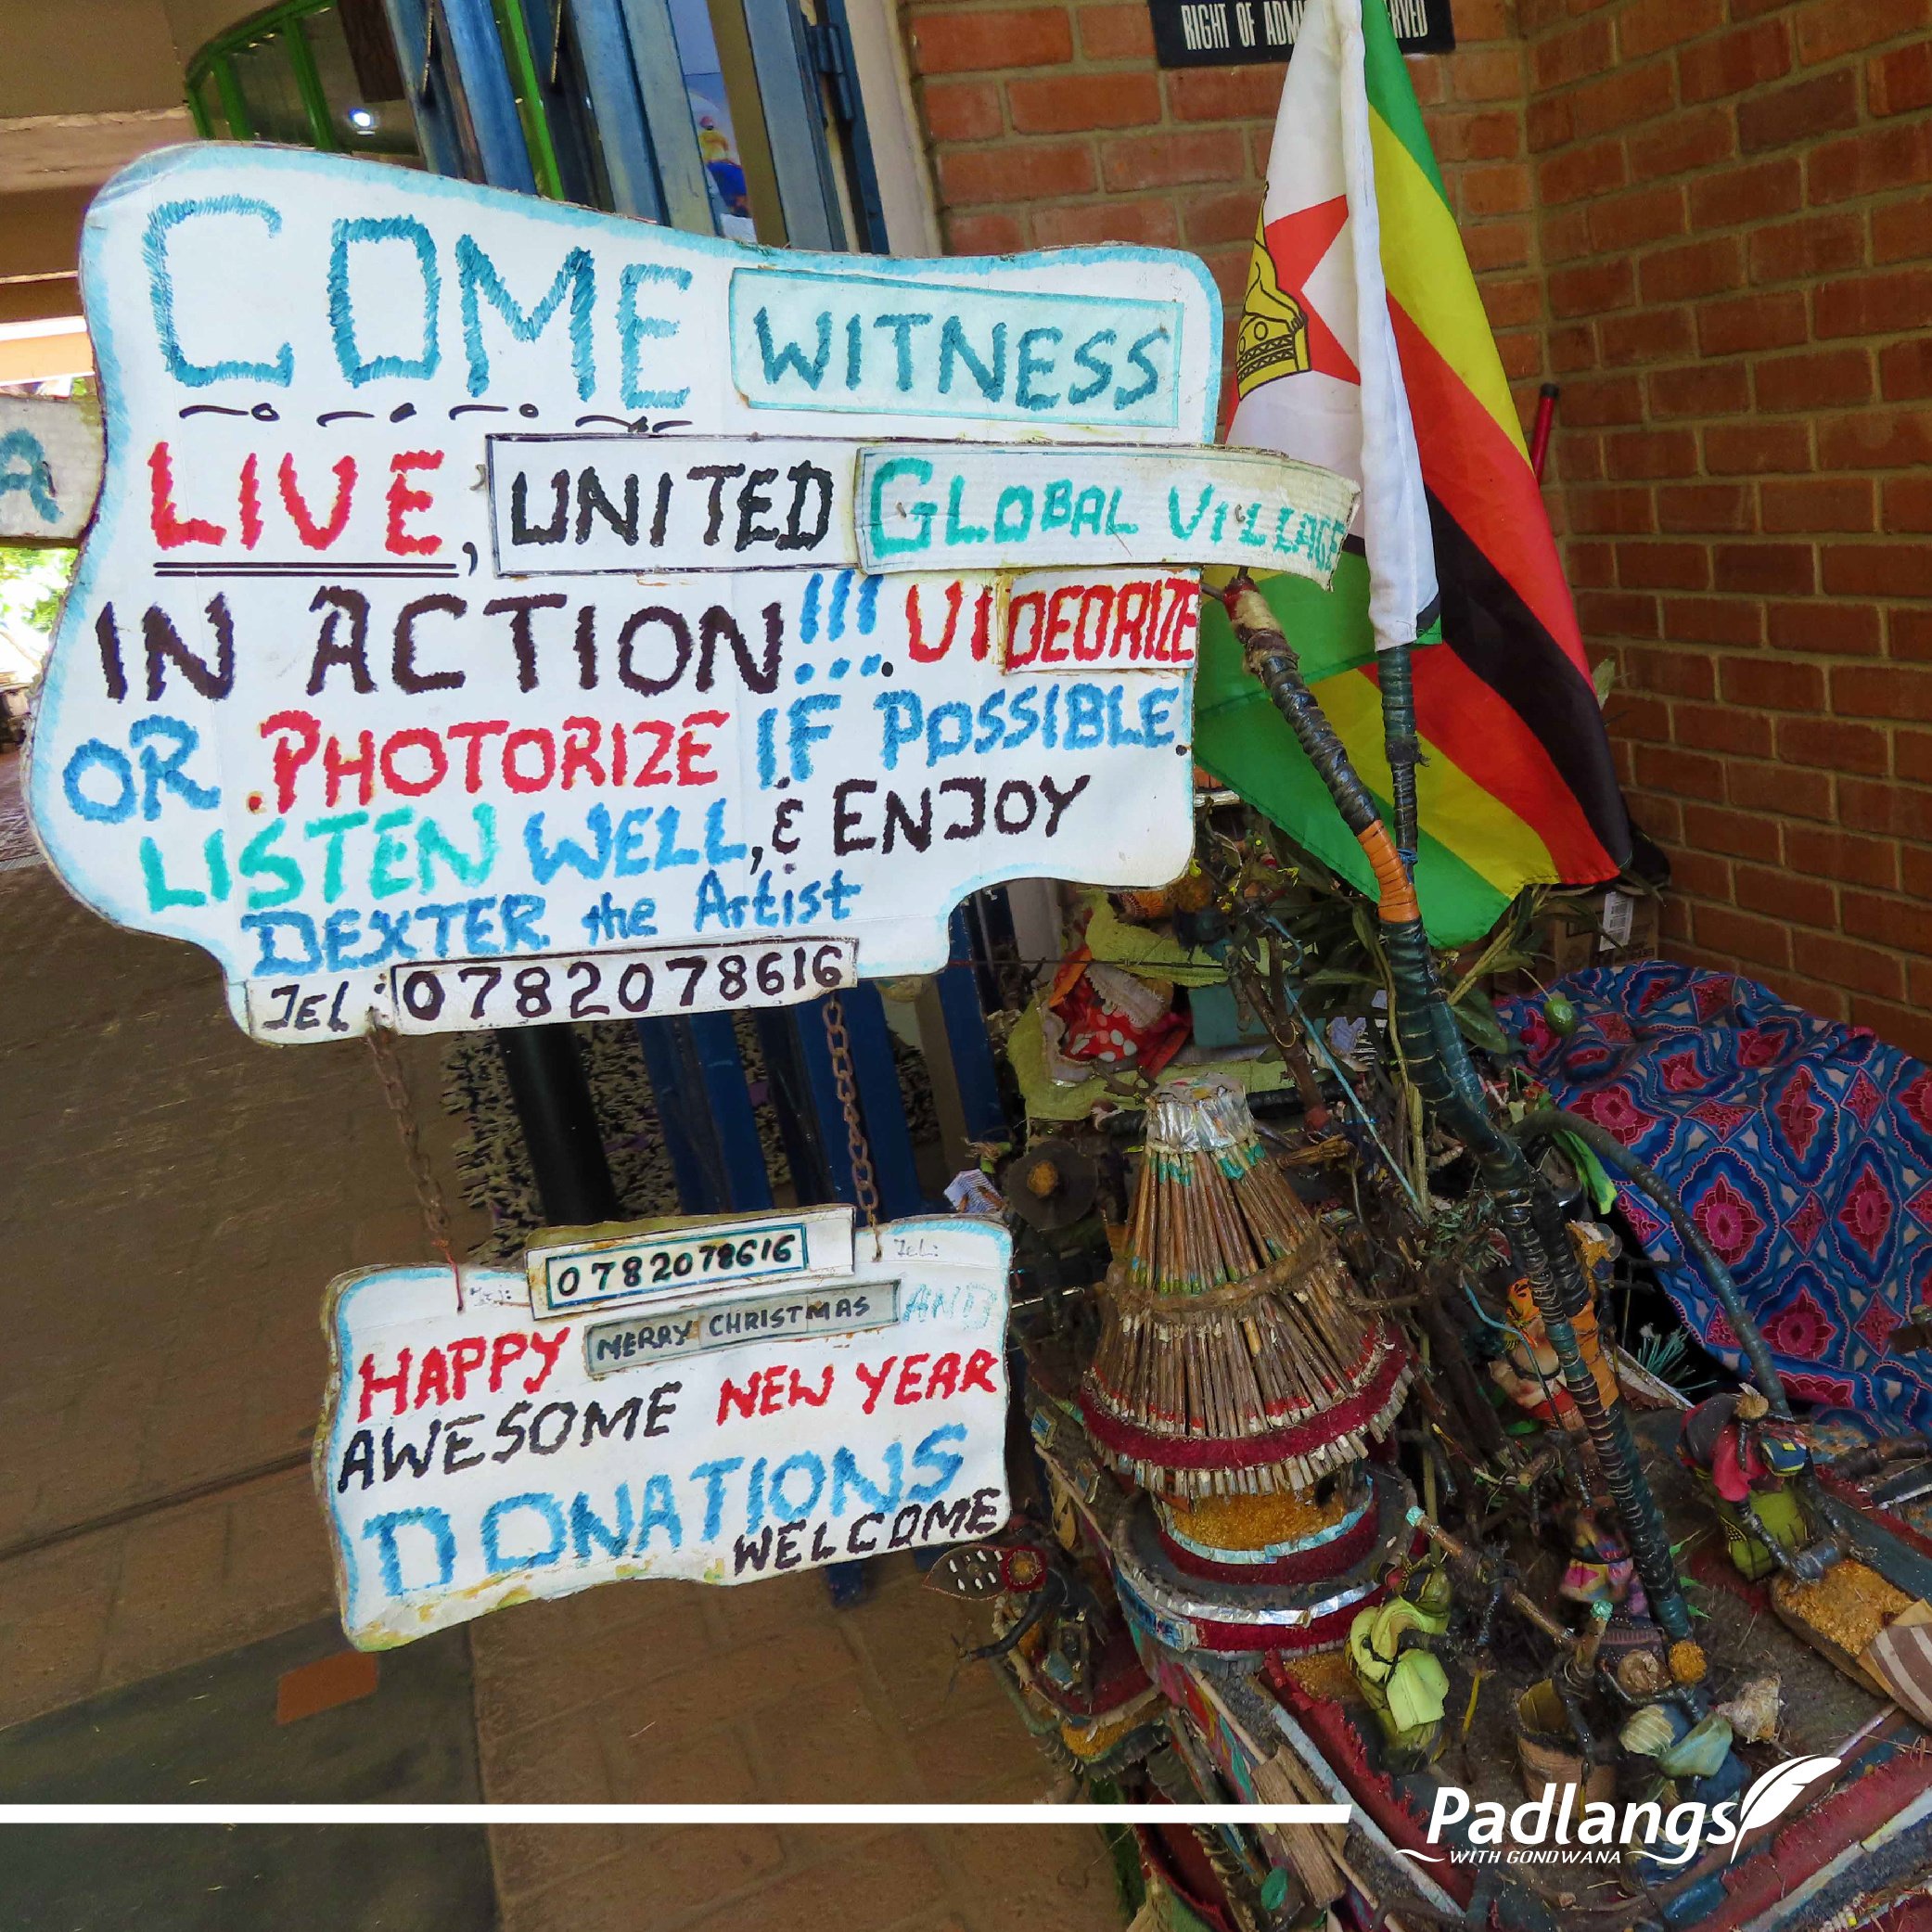 RIGHT OF
COME WITNESS
A
LIVE, UNITED GLOBAL VILLAGE
IN ACTION!!!. VIDEORIZE
OR .PHOTORIZE IF POSSIBLE.
LISTEN WELL, & ENJOY
DEXTER the Artist
TEL: 0782078616
0782078616
Tel:
HAPPY MERRY CHRISTMAS AND
AWESOME NEW YEAR
DONATIONS
WELCOME
Padlangs
WITH GONDWANA